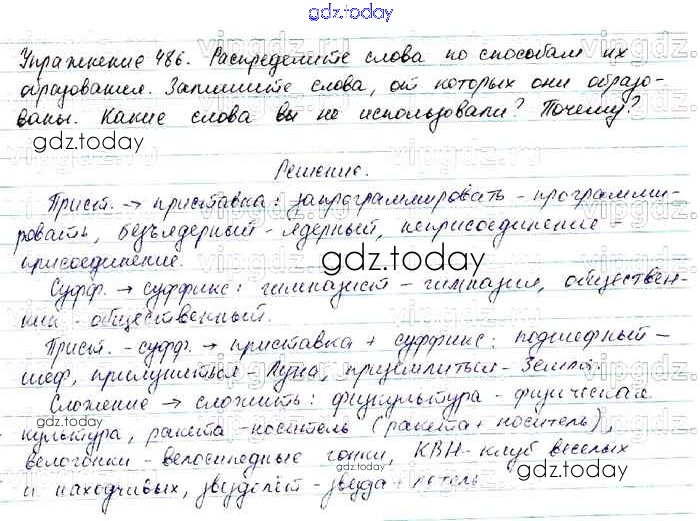 gdz.today
Упражнение 486. Распределите слова по способам их
образования. Запишите слова, от которых они образо-
ваны. Какие слова вы не использовали? Почему?
gdz.today
Решение.
Прист. → приставка: запрограммировать - программи-
ровать, безъядерный - ядерный, неприсоединение -
присоединение.
gdz.today
Суфф. → суффикс: гимназист - гимназия, обществен-
ник - общественный.
gdz.today
Прист. - суфф. → приставка + суффикс: подшефный -
шеф, прилуниться - Луна, приземлиться - Земля.
Сложение → сложить: физкультура - физическая
культура, ракета-носитель (ракета + носитель),
gdz.today
велогонки - велосипедные гонки, КВН - клуб веселых
и находчивых, звездолёт - звезда +
gdz.today
gdz.today